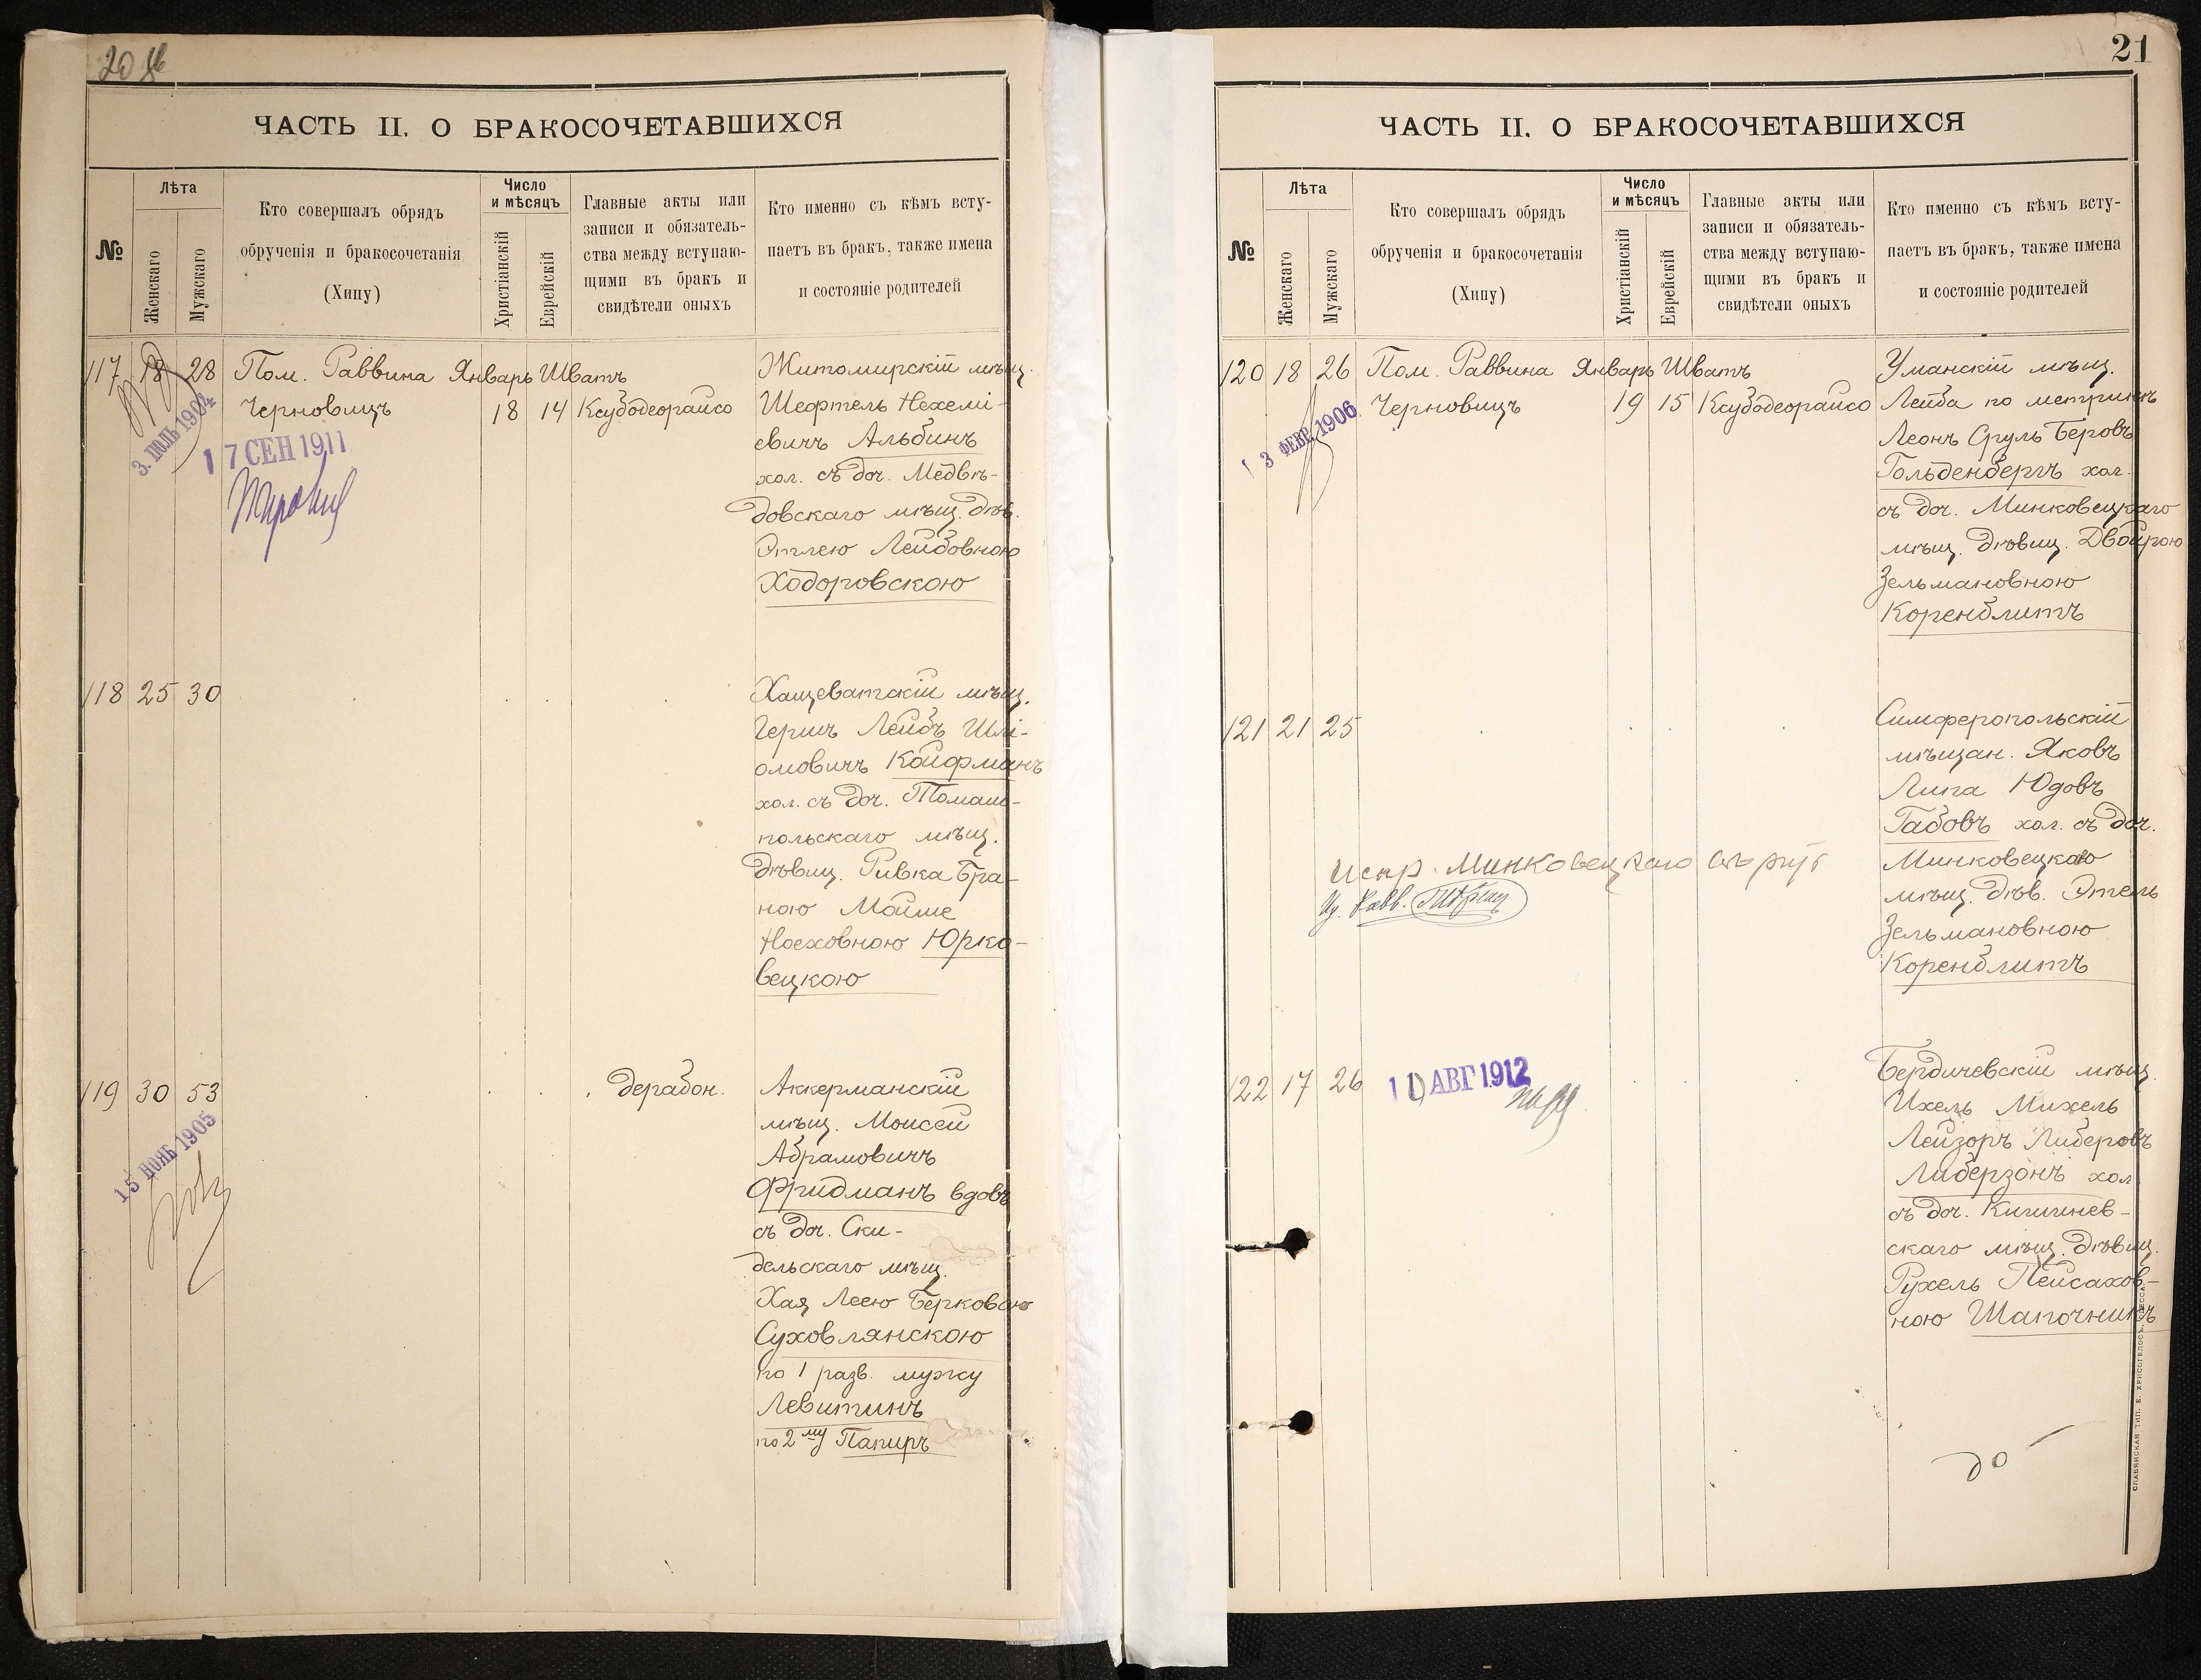 20
ЧАСТЬ II. О БРАКОСОЧЕТАВШИХСЯ
№
Лѣта
Женскаго
Мужскаго
Кто совершалъ обрядъ
обрученія и бракосочетанія
(Хипу)
Число
и мѣсяцъ
Христіанскій
Еврейскій
Главные акты или
записи и обязатель-
ства между вступаю-
щими въ бракъ и
свидѣтели оныхъ
Кто именно съ кѣмъ всту-
паетъ въ бракъ, также имена
и состояніе родителей
117 18 28 Пом. Раввина Январь Шватъ
Черновицъ 18 14 Ксубодеорайсо
3. ІЮЛЬ 1904
17 СЕН 1911
Житомирскій мѣщ.
Шефтель Нехемі-
евичъ Альбинъ
хол. съ доч. Медвѣ-
довскаго мѣщ. дѣв.
Этлею Лейбовною
Ходоровскою
118 25 30
Хащеватскій мѣщ.
Гершъ Лейбъ Шлі-
омовичъ Койфманъ
хол. съ доч. Томаш-
польскаго мѣщ.
дѣвиц. Ривка Бра-
ною Мойше
Носховною Юрко-
вецкою
119 30 53 дерабон.
15 ІЮНЬ 1905
Аккерманскій
мѣщ. Моисей
Абрамовичъ
Фридманъ вдовъ
съ доч. Ски-
дельскаго мѣщ.
Хая Леею Берковою
Суховлянскою
по 1 разв. мужу
Левитинъ
по 2му Папиръ
21
ЧАСТЬ II. О БРАКОСОЧЕТАВШИХСЯ
№
Лѣта
Женскаго
Мужскаго
Кто совершалъ обрядъ
обрученія и бракосочетанія
(Хипу)
Число
и мѣсяцъ
Христіанскій
Еврейскій
Главные акты или
записи и обязатель-
ства между вступаю-
щими въ бракъ и
свидѣтели оныхъ
Кто именно съ кѣмъ всту-
паетъ въ бракъ, также имена
и состояніе родителей
120 18 26 Пом. Раввина Январь Шватъ
Черновицъ 19 15 Ксубодеорайсо
13 ФЕВР. 1906
Уманскій мѣщ.
Лейба по метрикѣ
Леонъ Сруль Беровъ
Гольденбергъ хол.
съ доч. Минковецкаго
мѣщ. дѣвиц. Двойрою
Зельмановною
Коренблитъ
121 21 25
Симферопольскій
мѣщан. Яковъ
Липа Юдовъ
Габовъ хол. съ доч.
Минковецкаго
мѣщ. дѣв. Этель
Зельмановною
Коренблитъ
испр. Минковецкаго
Равв.
122 17 26
10 АВГ 1912
Бердичевскій мѣщ.
Ихель Михель
Лейзоръ Либеровъ
Либерзонъ хол.
съ доч. Кишинев-
скаго мѣщ. дѣвиц.
Рухель Пейсахов-
ною Шапочникъ
СЛАВЯНСКАЯ ТИП. Е. ХРИСОГЕЛОСЪ, ОДЕССА